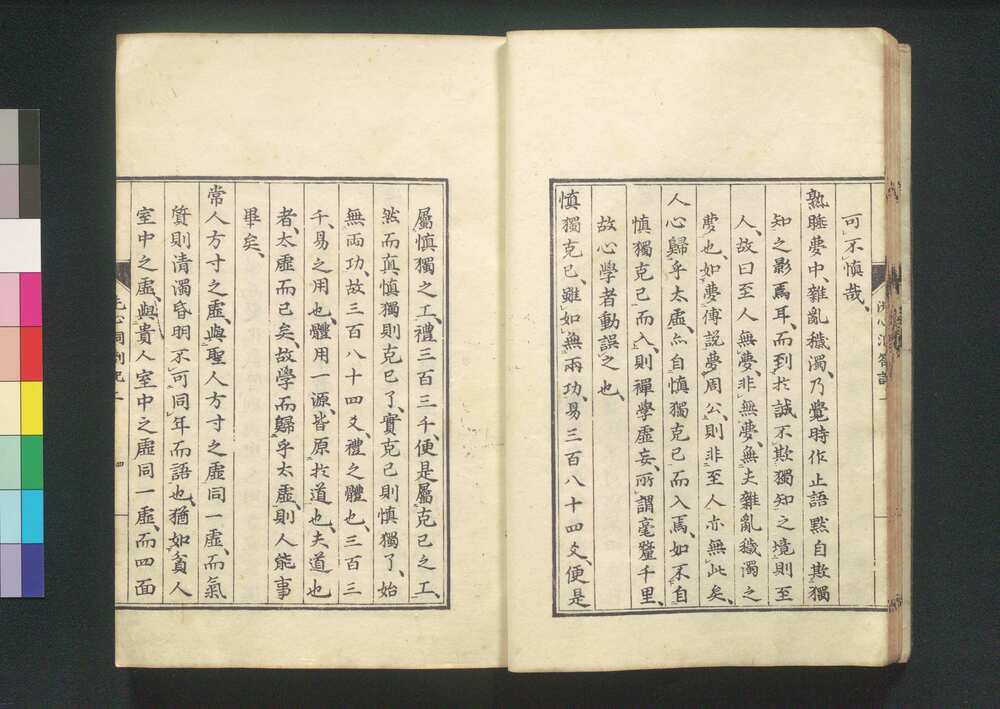 可不慎哉、
熟睡夢中、雜亂穢濁、乃覺時作止語默自欺獨
知之影焉耳、而到於誠不欺獨知之境、則至
人、故曰至人無夢、非無夢、無夫雜亂穢濁之
夢也、如夢傅説夢周公、則非至人亦無此矣、
人心歸乎太虛、亦自慎獨克己而入焉、如不自
慎獨克己而入、則禪學虛妄、所謂毫釐千里、
故心學者動誤之也、
慎獨克己、雖如無兩功、易三百八十四爻、便是
屬慎獨之工、禮三百三千、便是屬克己之工、
然而眞慎獨則克己了、實克己則慎獨了、始
無兩功、故三百八十四爻、禮之體也、三百三
千、易之用也、體用一源、皆原於道也、夫道也
者、太虛而已矣、故學而歸乎太虛、則人能事
畢矣、
常人方寸之虛、與聖人方寸之虛同一虛、而氣
質則清濁昏明不可同年而語也、猶如貧人
室中之虛、與貴人室中之虛同一虛、而四面